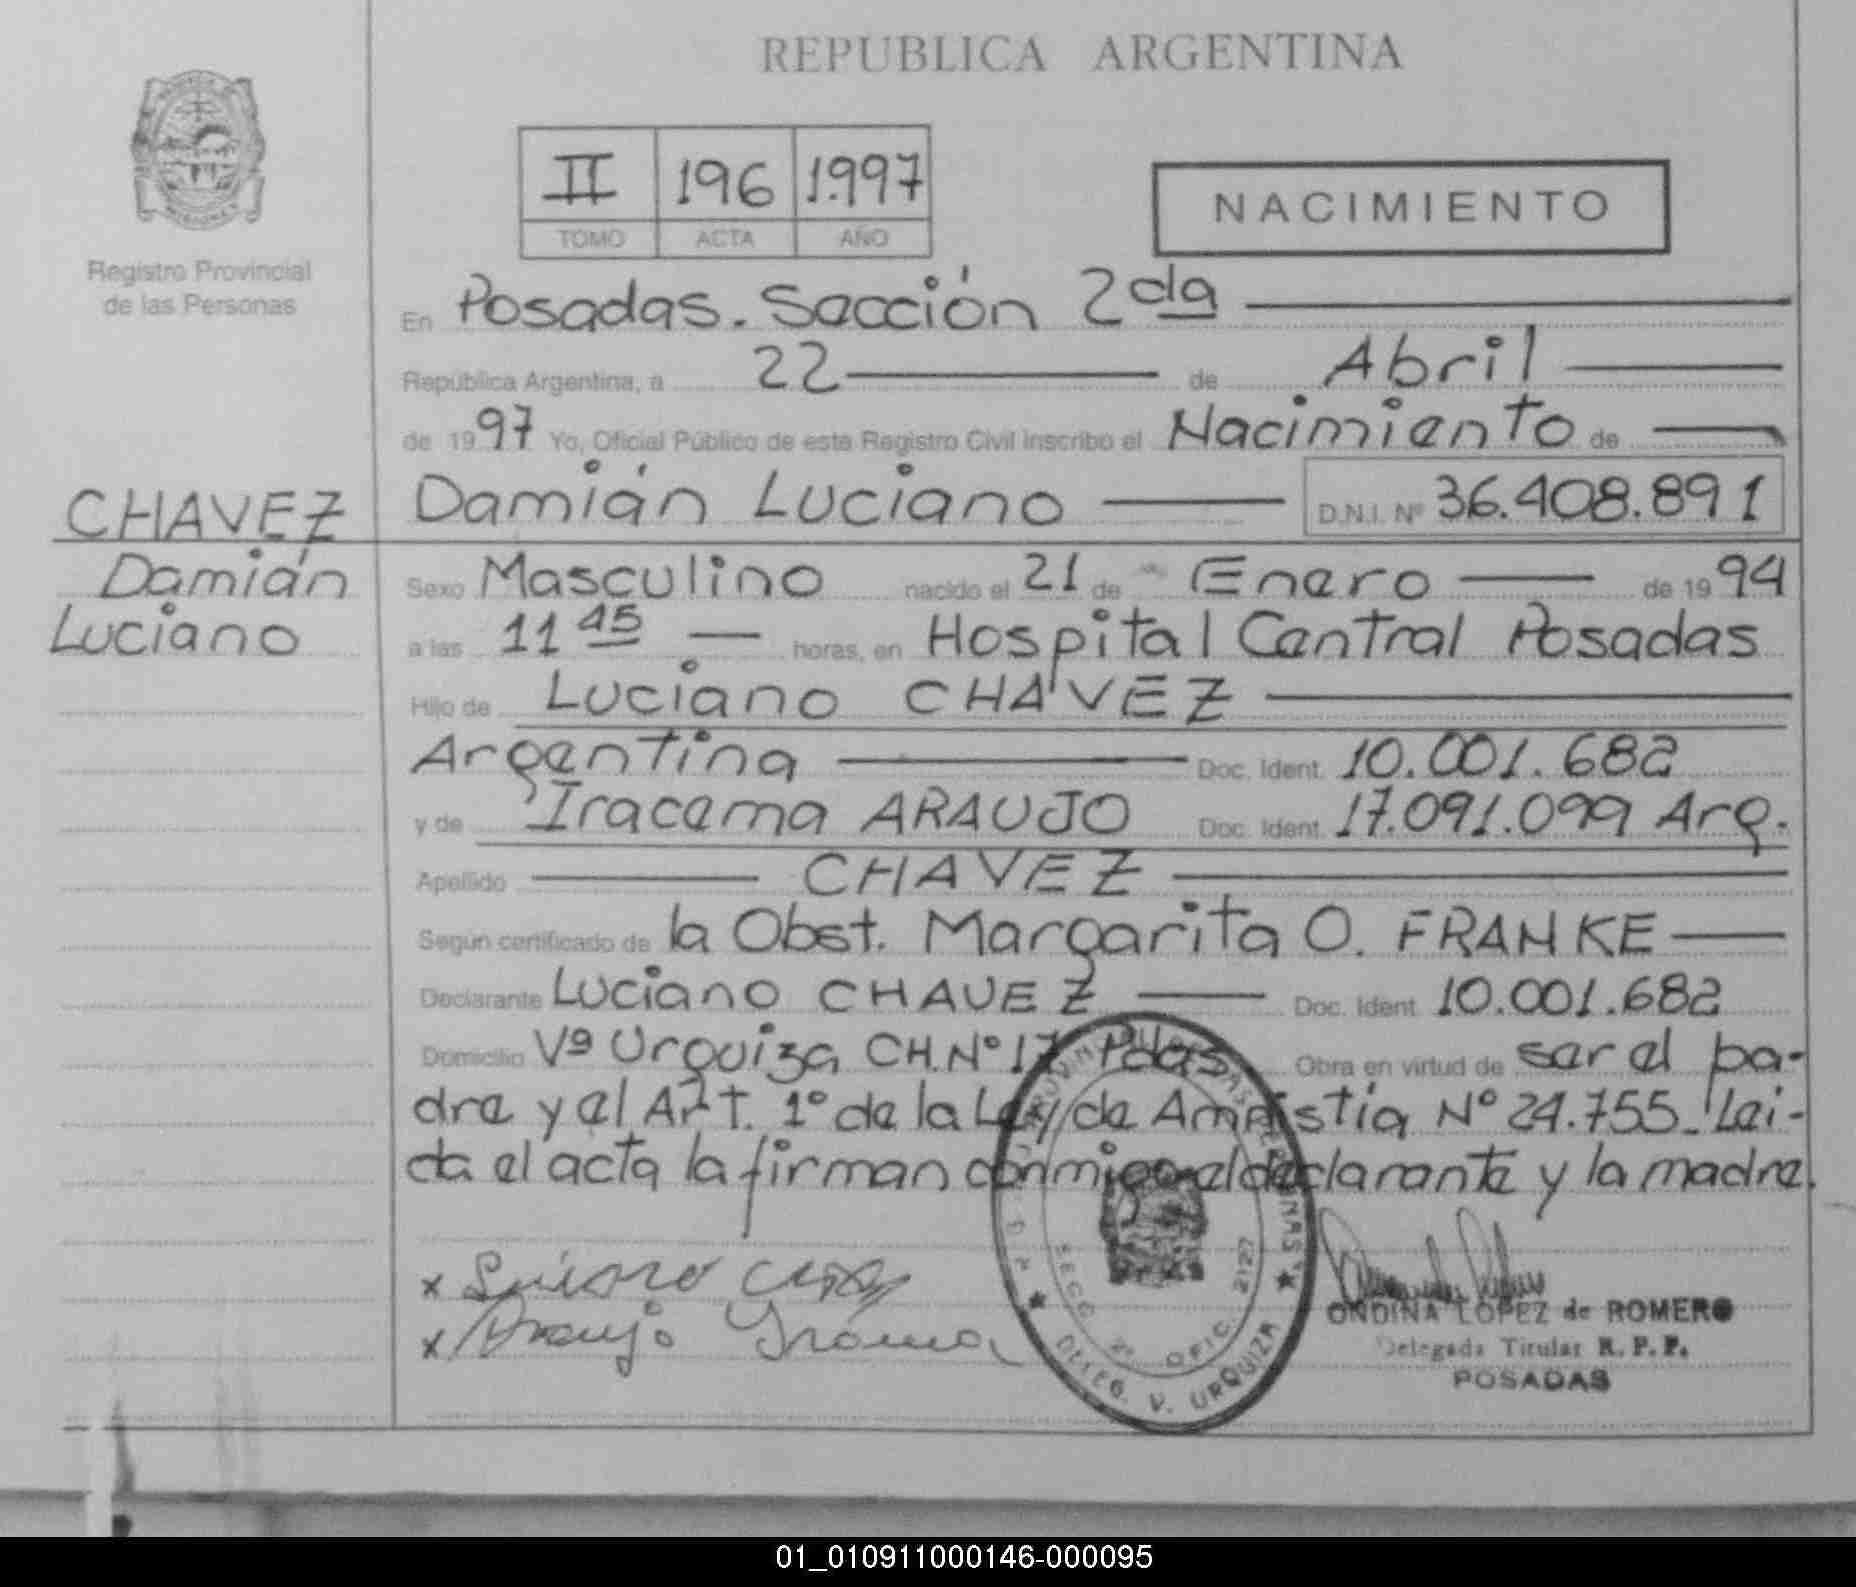 REPUBLICA ARGENTINA
II 196 1.997
TOMO ACTA AÑO
NACIMIENTO
Registro Provincial
de las Personas
En Posadas. Sección 2da
República Argentina, a 22 de Abril
de 1997 Yo, Oficial Público de este Registro Civil inscribo el Nacimiento de
Damián Luciano D.N.I. Nº 36.408.891
CHAVEZ
Damián
Luciano
Sexo Masculino nacido el 21 de Enero de 1994
a las 11 45 horas, en Hospital Central Posadas
Hijo de Luciano CHAVEZ
Argentina Doc. Ident. 10.001.682
y de Iracema ARAUJO Doc. Ident. 17.091.099 Arg.
Apellido CHAVEZ
Según certificado de la Obst. Margarita O. FRANKE
Declarante Luciano CHAVEZ Doc. Ident. 10.001.682
Domicilio Vª Urquiza CH.Nº 17 Pdas Obra en virtud de ser el pa-
dre y el Art. 1º de la Ley de Amnistía Nº 24.755. Lei-
da el acta la firman conmigo el declarante y la madre.
x Luciano
x Araujo
SECC. 2ª OFIC. 2127
DELEG. V. URQUIZA
ONDINA LOPEZ de ROMERO
Delegada Titular R. P. P.
POSADAS
01_010911000146-000095